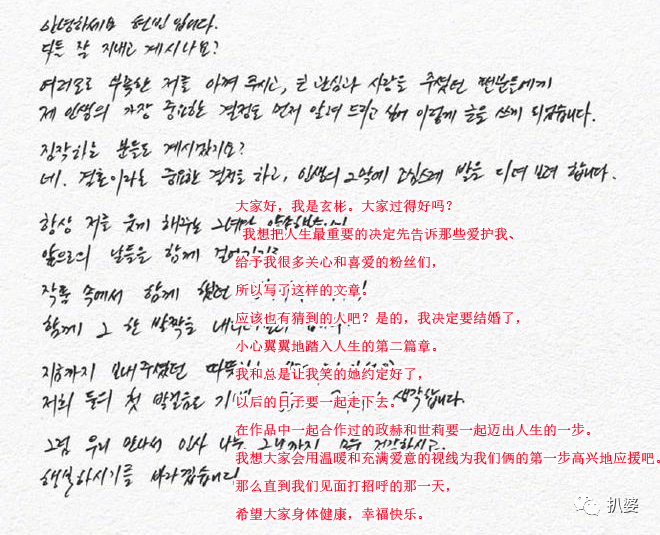 안녕하세요 현빈입니다.
다들 잘 지내고 계시나요?
여러모로 부족한 저를 아껴 주시고, 큰 관심과 사랑을 주셨던 팬분들에게
제 인생의 가장 중요한 결정을 먼저 알려 드리고 싶어 이렇게 글을 쓰게 되었습니다.
짐작하는 분들도 계시겠지요?
네. 결혼이라는 중요한 결정을 하고, 인생의 2막에 조심스레 발을 디뎌 보려 합니다.
항상 저를 웃게 해주는 그녀와
앞으로의 날들을 함께 걸어가기로
작품 속에서 함께 했던
함께 그 한 발짝을
지금까지 보내주셨던
저희 둘의 첫 발걸음도 생각합니다.
그럼 우리 만나서 인사 그날까지 모두 건강하시고
행복하시기를 바라겠습니다
大家好，我是玄彬。大家过得好吗？
我想把人生最重要的决定先告诉那些爱护我、
给予我很多关心和喜爱的粉丝们，
所以写了这样的文章。
应该也有猜到的人吧？是的，我决定要结婚了，
小心翼翼地踏入人生的第二篇章。
我和总是让我笑的她约定好了，
以后的日子要一起走下去。
在作品中一起合作过的政赫和世莉要一起迈出人生的一步。
我想大家会用温暖和充满爱意的视线为我们俩的第一步高兴地应援吧。
那么直到我们见面打招呼的那一天，
希望大家身体健康，幸福快乐。
扒婆